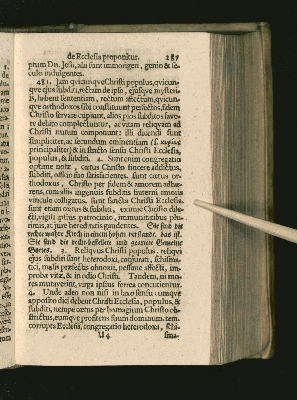 de Ecclesia proponitur. 287
ptum Dn. Jesu, alii sunt immorigeri, genio & se-
culo indulgentes.
481. Jam quicunque Christi populus, quicun-
que ejus subditi, rectam de ipso, ejusque mysteri-
is, habent sententiam, rectum affectum, quicun-
que orthodoxos sibi constituunt perfectos, fidem
Christo servare cupiunt, alios pios subditos favo-
re debito complectuntur, ac vitam reliquam ad
Christi nutum componunt: illi dicendi sunt
simpliciter, ac secundum eminentiam (
principaliter) & in stricto sensu Christi Ecclesia,
populus, & subditi. 4. Sunt enim congregatio
optimæ notæ, cœtus Christo sincere addictus,
subditi, officio suo satisfacientes. sunt cœtus or-
thodoxus, Christo per fidem & amorem adhæ-
rens, cum aliis ingenuis subditis fraterni amoris
vinculo colligatus. sunt sancta Christi Ecclesia.
sunt etiam cœtus & subditi, eximiæ Christo dile-
cti, vigili ipsius patrocinio, immunitatibus plu-
rimis, ac jure hereditatis gaudentes. Sie sind die
rechte wahre Kirch in einem hohen verstande, das ist.
Sie sind die recht-beschaffene und getreue Gemeine
Gottes. 2. Reliquus Christi populus, reliqui
ejus subditi sunt heterodoxi, conjurati, schisma-
tici, malis præfectis obnoxii, pessime affecti, im-
probæ vitæ, & in odio Christi. Tandem, ni mo-
res mutaverint, virga ipsius ferrea conterentur.
4. Unde adeo non nisi in laxo sensu cumque
apposito dici debent Christi Ecclesia, populus, &
subditi, nempe cœtus per homagium Christo ob-
strictus, eumque profitens suum dominum. sed
corrupta Ecclesia, congregatio heterodoxa, schi-
U 4 sma-